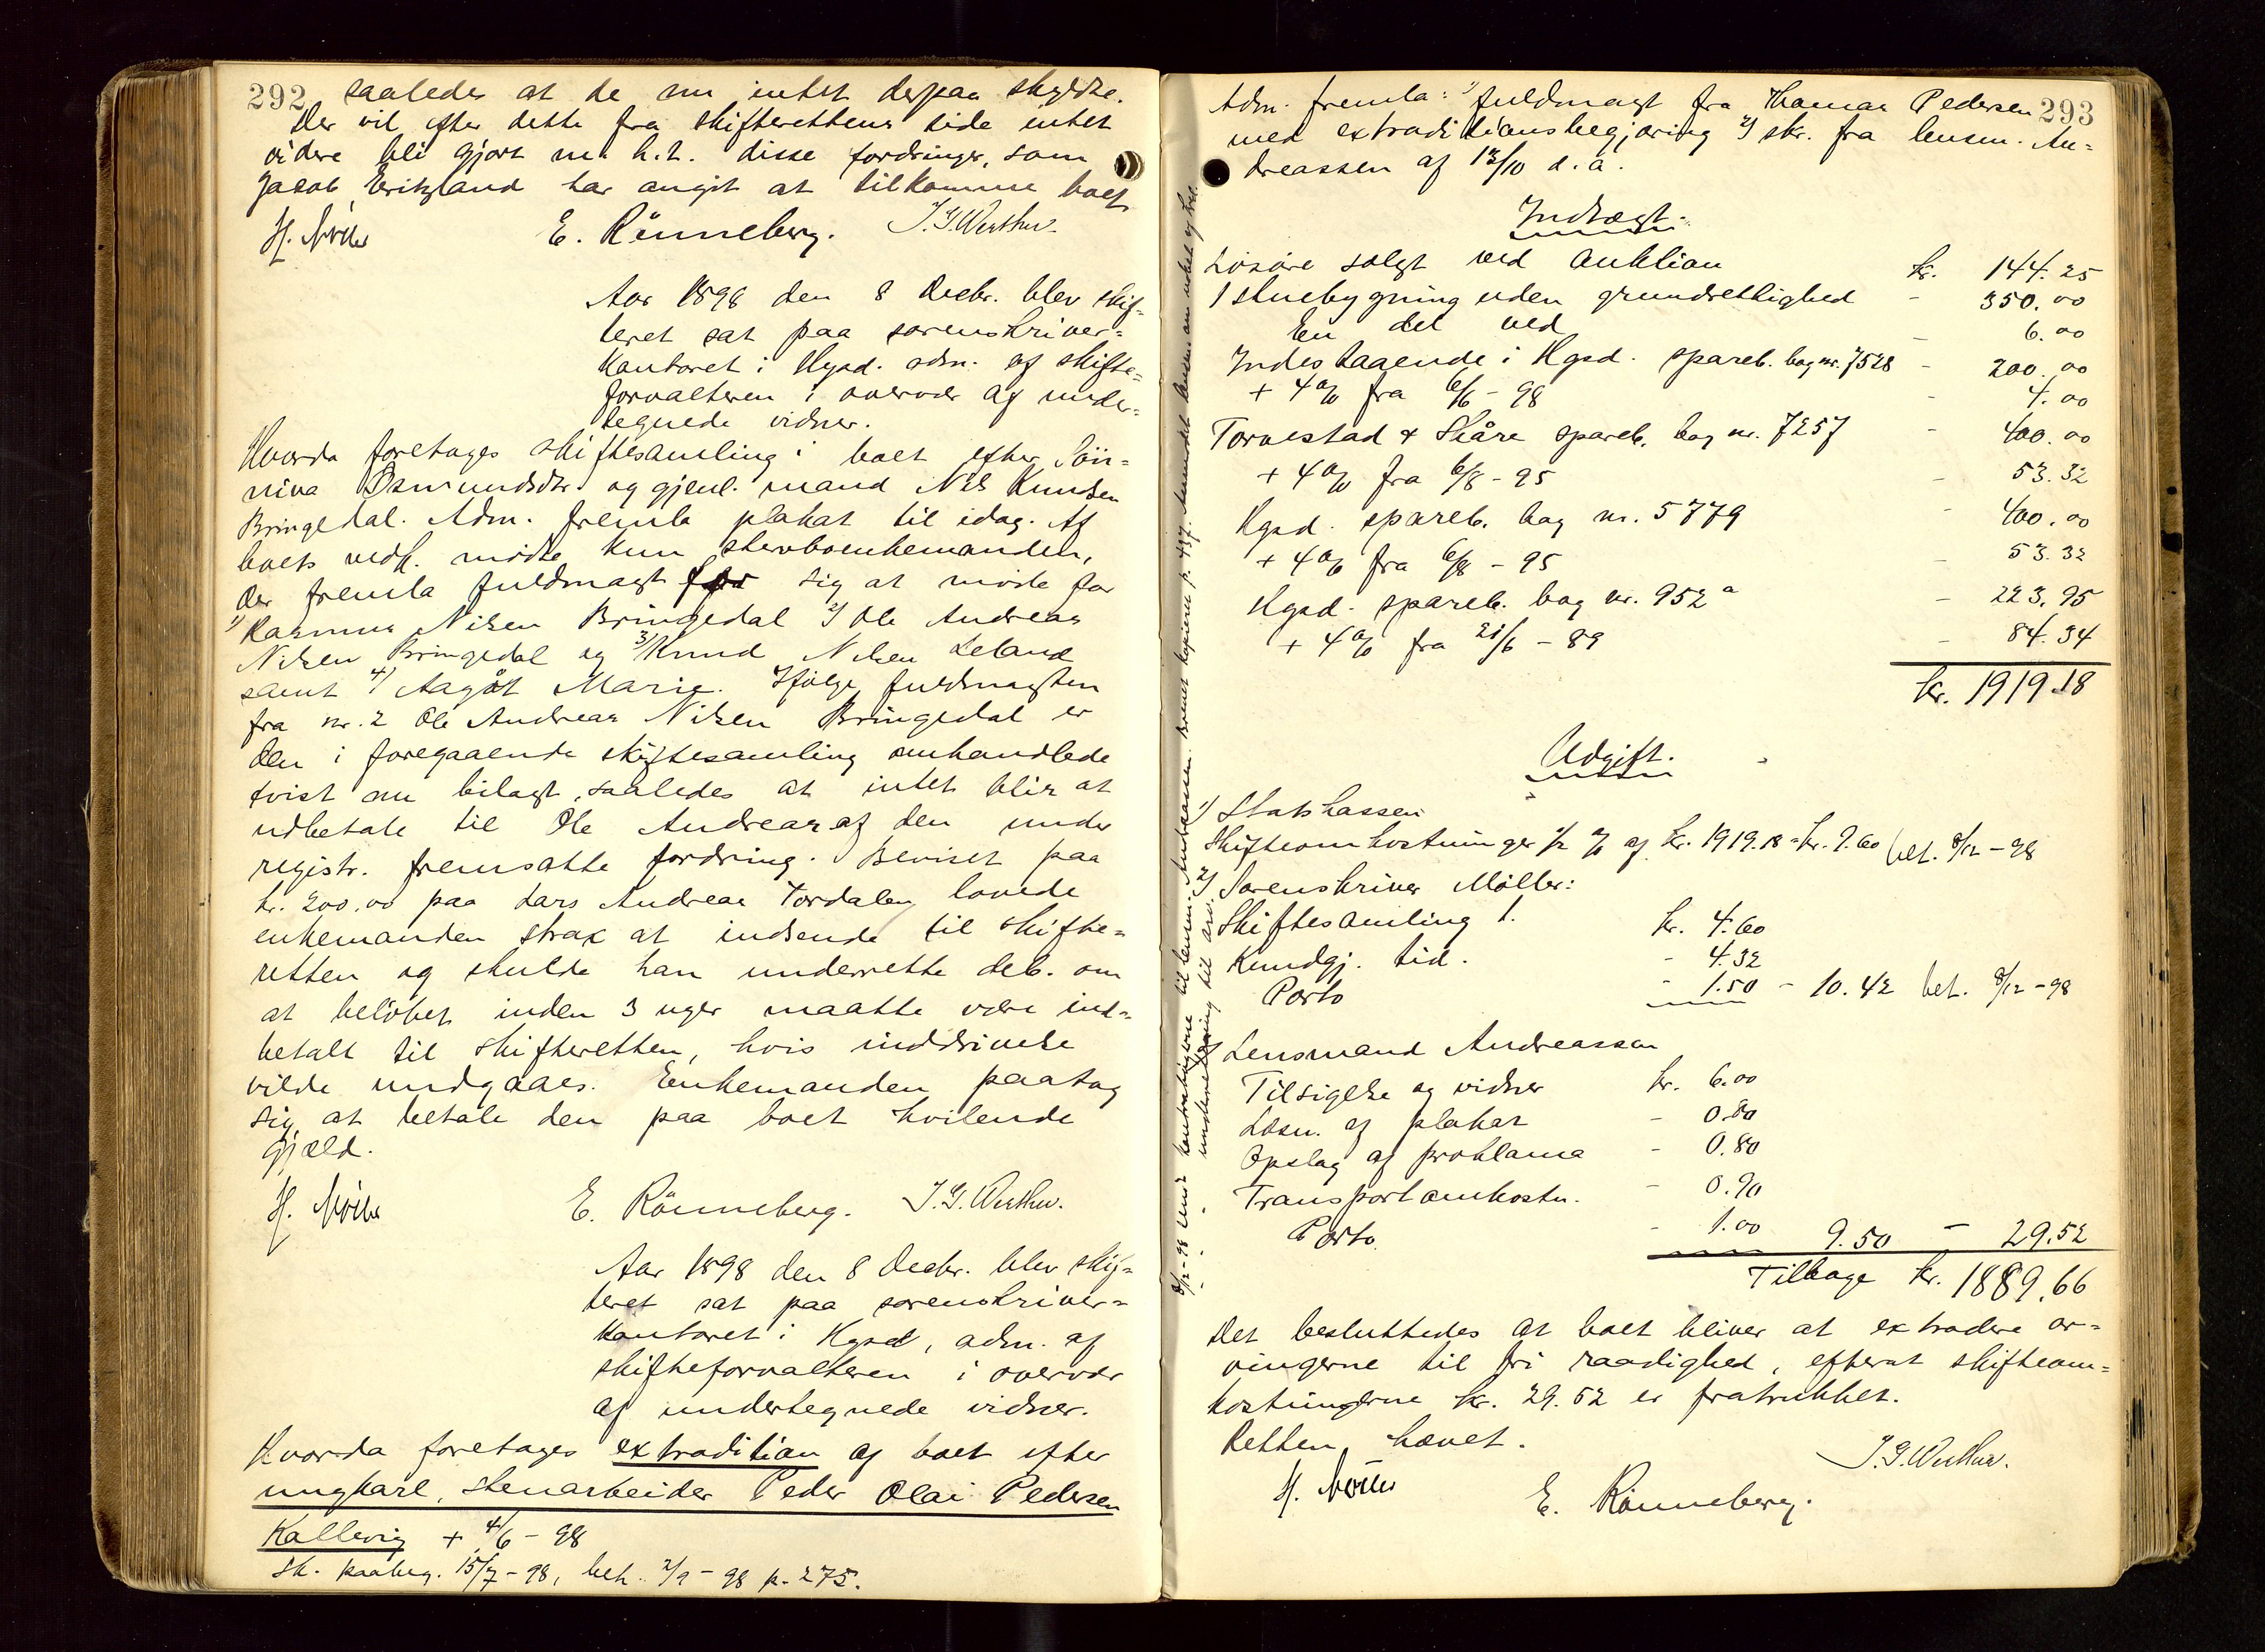 292 saaledes at de nu intet derpaa skyldte.
Der vil efter dette fra skifterettens side intet
videre bli gjort m. h. t. disse fordringer, som
Jacob Eritzland har angit at tilkomme boet
H. Möller E. Rönneberg. J.G. Westhur.
Aar 1898 den 8 Decbr. blev skif-
teret sat paa sorenskriver-
kontoret i Hgsd. adm. af skifte-
forvalteren i overvær af under-
tegnede vidner.
Hvorda foretages skiftesamling i boet efter Sön-
niva Osmundsdtr. og gjenl. mand Nils Knudsen
Bringedal. Adm. fremla plakat til idag. Af
boets vedk. mödte kun sterboenkemanden,
der fremla fuldmagt for sig at möde for
1) Rasmus Nilsen Bringedal 2) Ole Andreas
Nilsen Bringedal og 3) Knud Nilsen Leland
samt 4) Aagöt Marie. Ifölge fuldmagten
fra nr. 2 Ole Andreas Nilsen Bringedal er
den i foregaaende skiftesamling omhandlede
tvist nu bilagt, saaledes at intet blir at
udbetale til Ole Andreas af den under
registr. fremsatte fordring. Beviset paa
kr. 200.00 paa Lars Andreas Tordalen lovede
enkemanden strax at indsende til skifte-
retten og skulde han underrette deb. om
at belöbet inden 3 uger maatte være ind-
betalt til skifteretten, hvis inddrivelse
vilde undgaaes. Enkemanden paatog
sig at betale den paa boet hvilende
gjæld.
H. Möller E. Rönneberg. J.G. Westhur.
Aar 1898 den 8 Decbr. blev skif-
teret sat paa sorenskriver-
kontoret i Hgsd, adm. af
skifteforvalteren i overvær
af undertegnede vidner.
Hvorda foretages extradition af boet efter
ungkarl, stenarbeider Peder Olai Pedersen
Kallevig + 4/6 - 98
Sk. paabeg. 15/7 - 98, beh. 2/9 - 98 p. 275.
293
Adm. fremla: 1) fuldmagt fra Thomas Pedersen
med extraditionsbegjæring 2) skr. fra lensm. An-
dreassen af 13/10 d. a.
Indtægt.
Lösöre solgt ved auktion kr. 144.25
1 stuebygning uden grundrettighed - 350.00
En del ved - 6.00
Indestaaende i Hgsd. spareb. bog nr. 7528 - 200.00
+ 4 % fra 6/6 - 98 - 4.00
Torvestad & Skåre spareb. bog nr. 7257 - 400.00
+ 4 % fra 6/8 - 95 - 53.32
Hgsd. spareb. bog nr. 5779 - 400.00
+ 4 % fra 6/8 - 95 - 53.32
Hgsd. spareb. bog nr. 952 a - 223.95
+ 4 % fra 21/6 - 89 - 84.34
kr. 1919.18
Udgift.
1) Statskassen
Skifteomkostninger 1/2 % af kr. 1919.18 = kr. 9.60 bet. 8/12 - 98
2) Sorenskriver Möller:
Skiftesamling 1. kr. 4.60
Kundgj. tid. - 4.32
Porto - 1.50 - 10.42 bet. 8/12 - 98
Lensmand Andreassen
Tilsigelse og vidner kr. 6.00
Læsn. af plakat - 0.80
Opslag af proklama - 0.80
Transportomkostn. - 0.90
Porto - 1.00 9.50 - 29.52
Tilbage kr. 1889.66
Det besluttedes at boet bliver at extradere ar-
vingerne til fri raadighed, efterat skifteom-
kostningerne kr. 29.52 er fratrukket.
Retten hævet.
J.G. Westhur.
H. Möller E. Rönneberg.